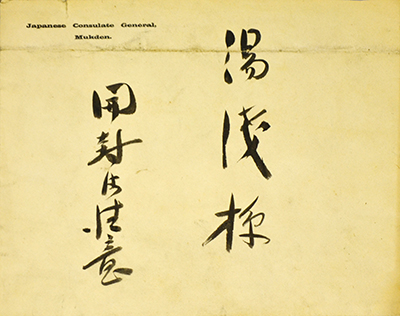 Japanese Consulate General,
Mukden.
湯浅様
開封御注意